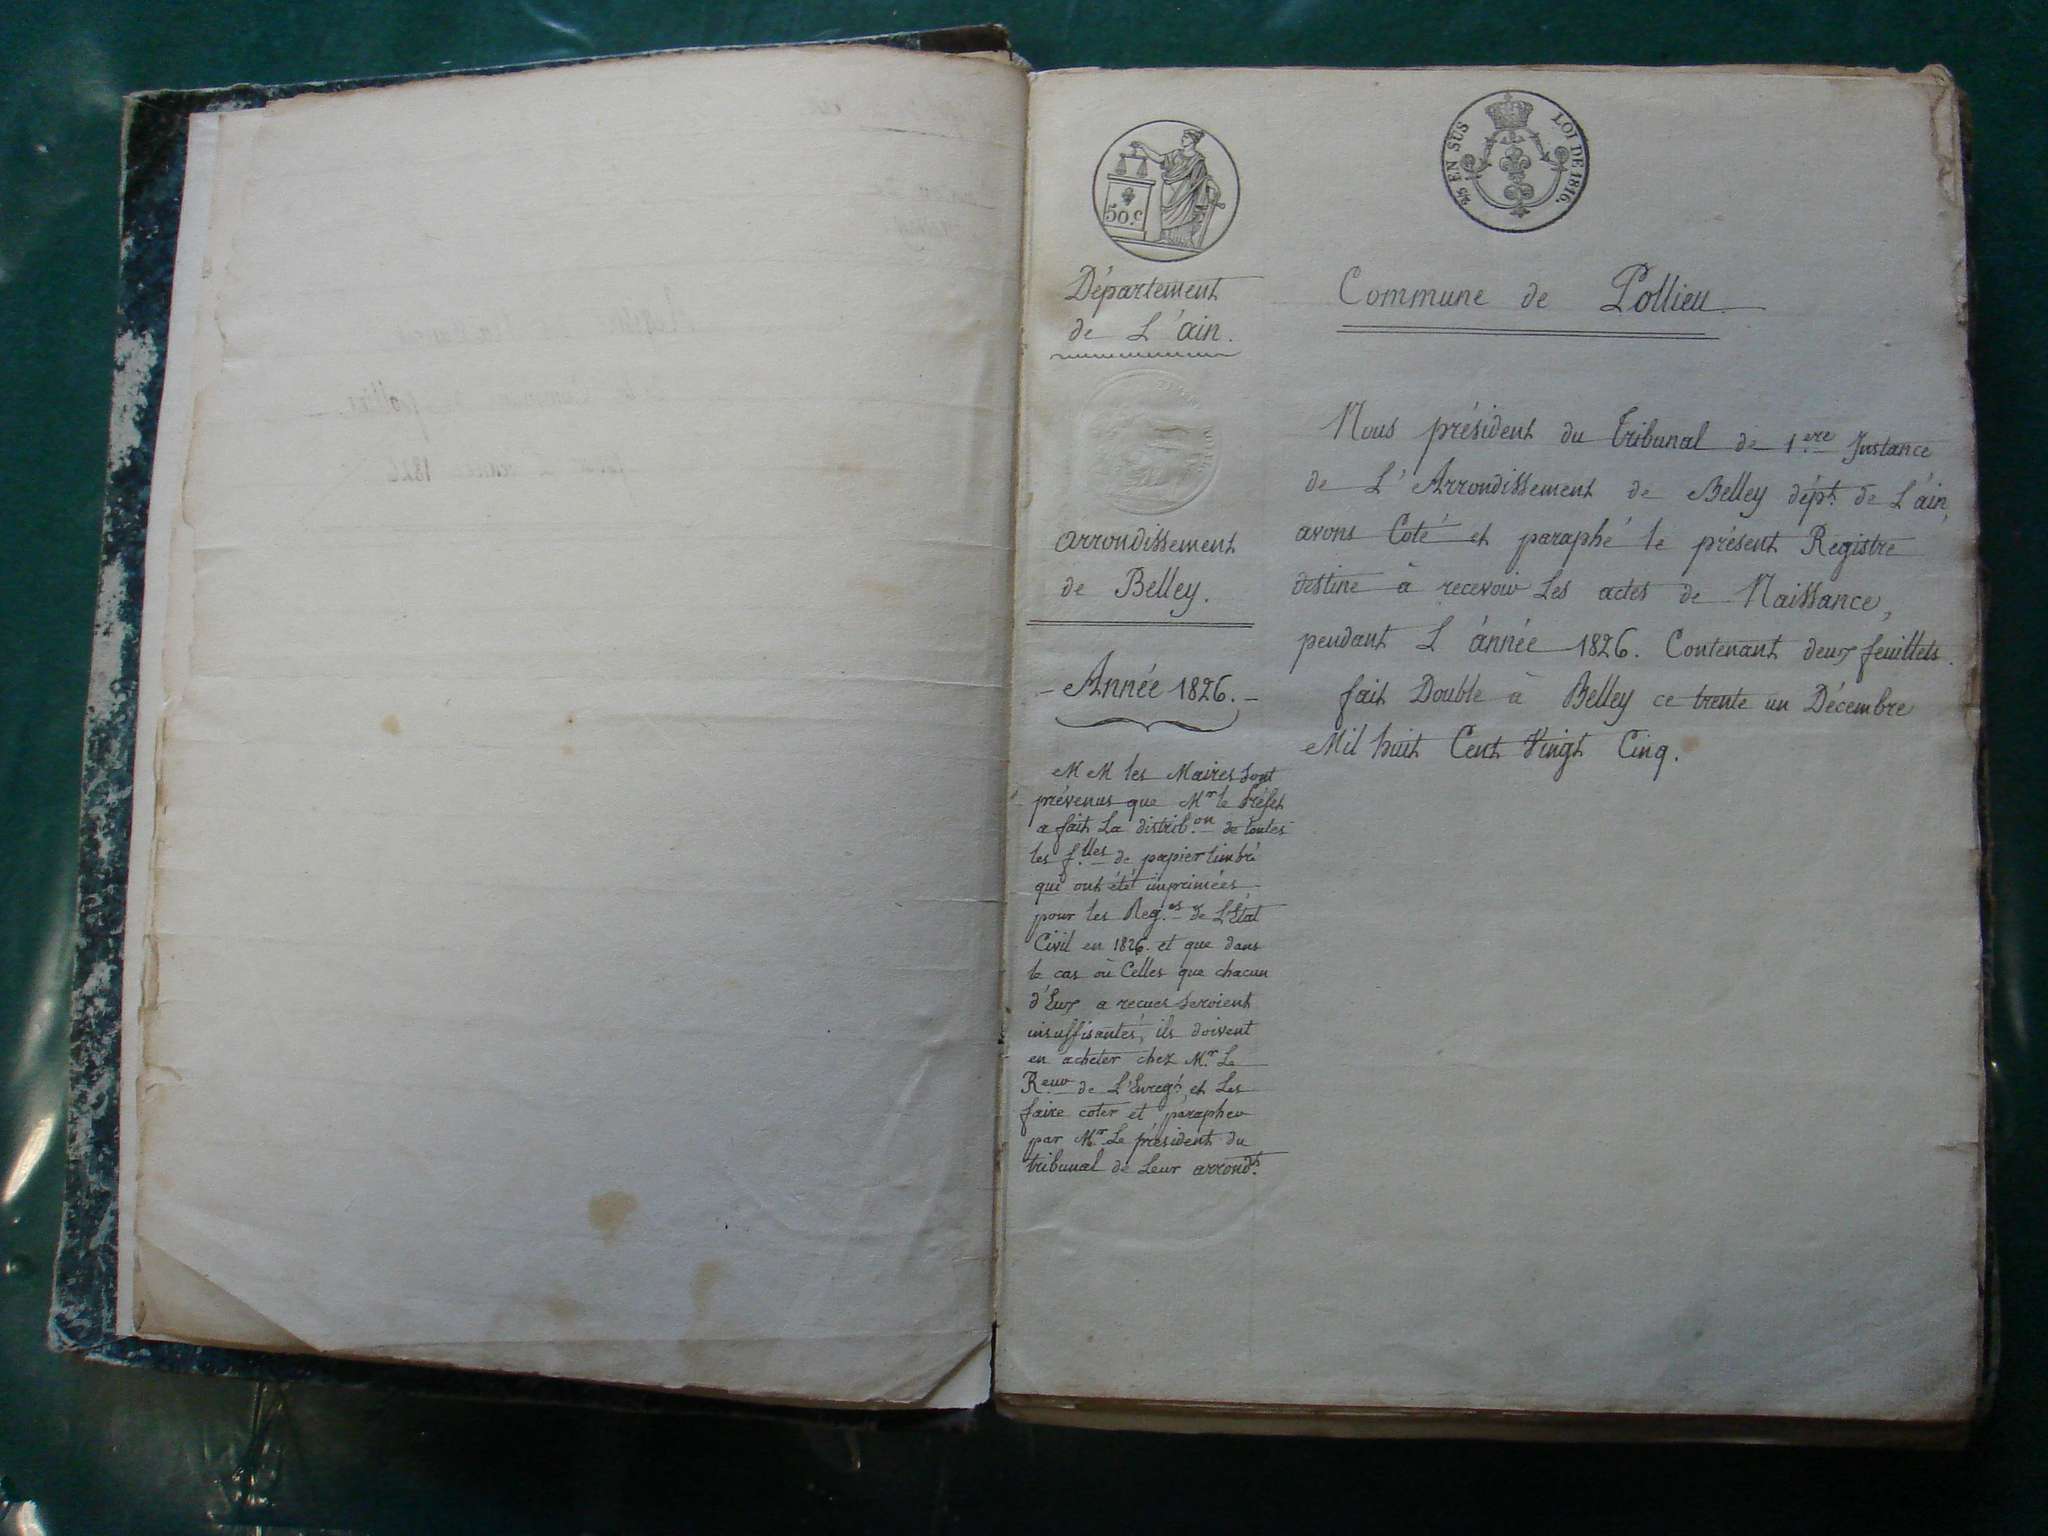 50.c
¼ EN SUS LOI DE 1816.
Département
de L'ain.
arrondissement
de Belley.
Année 1826.
M M les Maires sont
prévenus que Mr. le Préfet
a fait La distrib.on de toutes
les f.lles de papier timbré
qui ont étét imprimées
pour les Reg.es de L'Etat
Civil en 1826. et que dans
le cas où Celles que chacun
d'Eux a recues seroient
insuffisantes, ils doivent
en acheter chez Mr. Le
R.eur de L'Enregt. et Les
faire coter et parapher
par Mr. Le président du
tribunal de Leur arrondt.
Commune de Pollieu
Nous président du tribunal de 1.ere Instance
de L'Arrondissement de Belley dépt. de L'ain,
avons Coté et paraphé le présent Registre
destine à recevoir Les actes de Naissance,
pendant L'année 1826. Contenant deux feuillets.
fait Double à Belley ce trente un Décembre
Mil huit Cent Vingt Cinq.